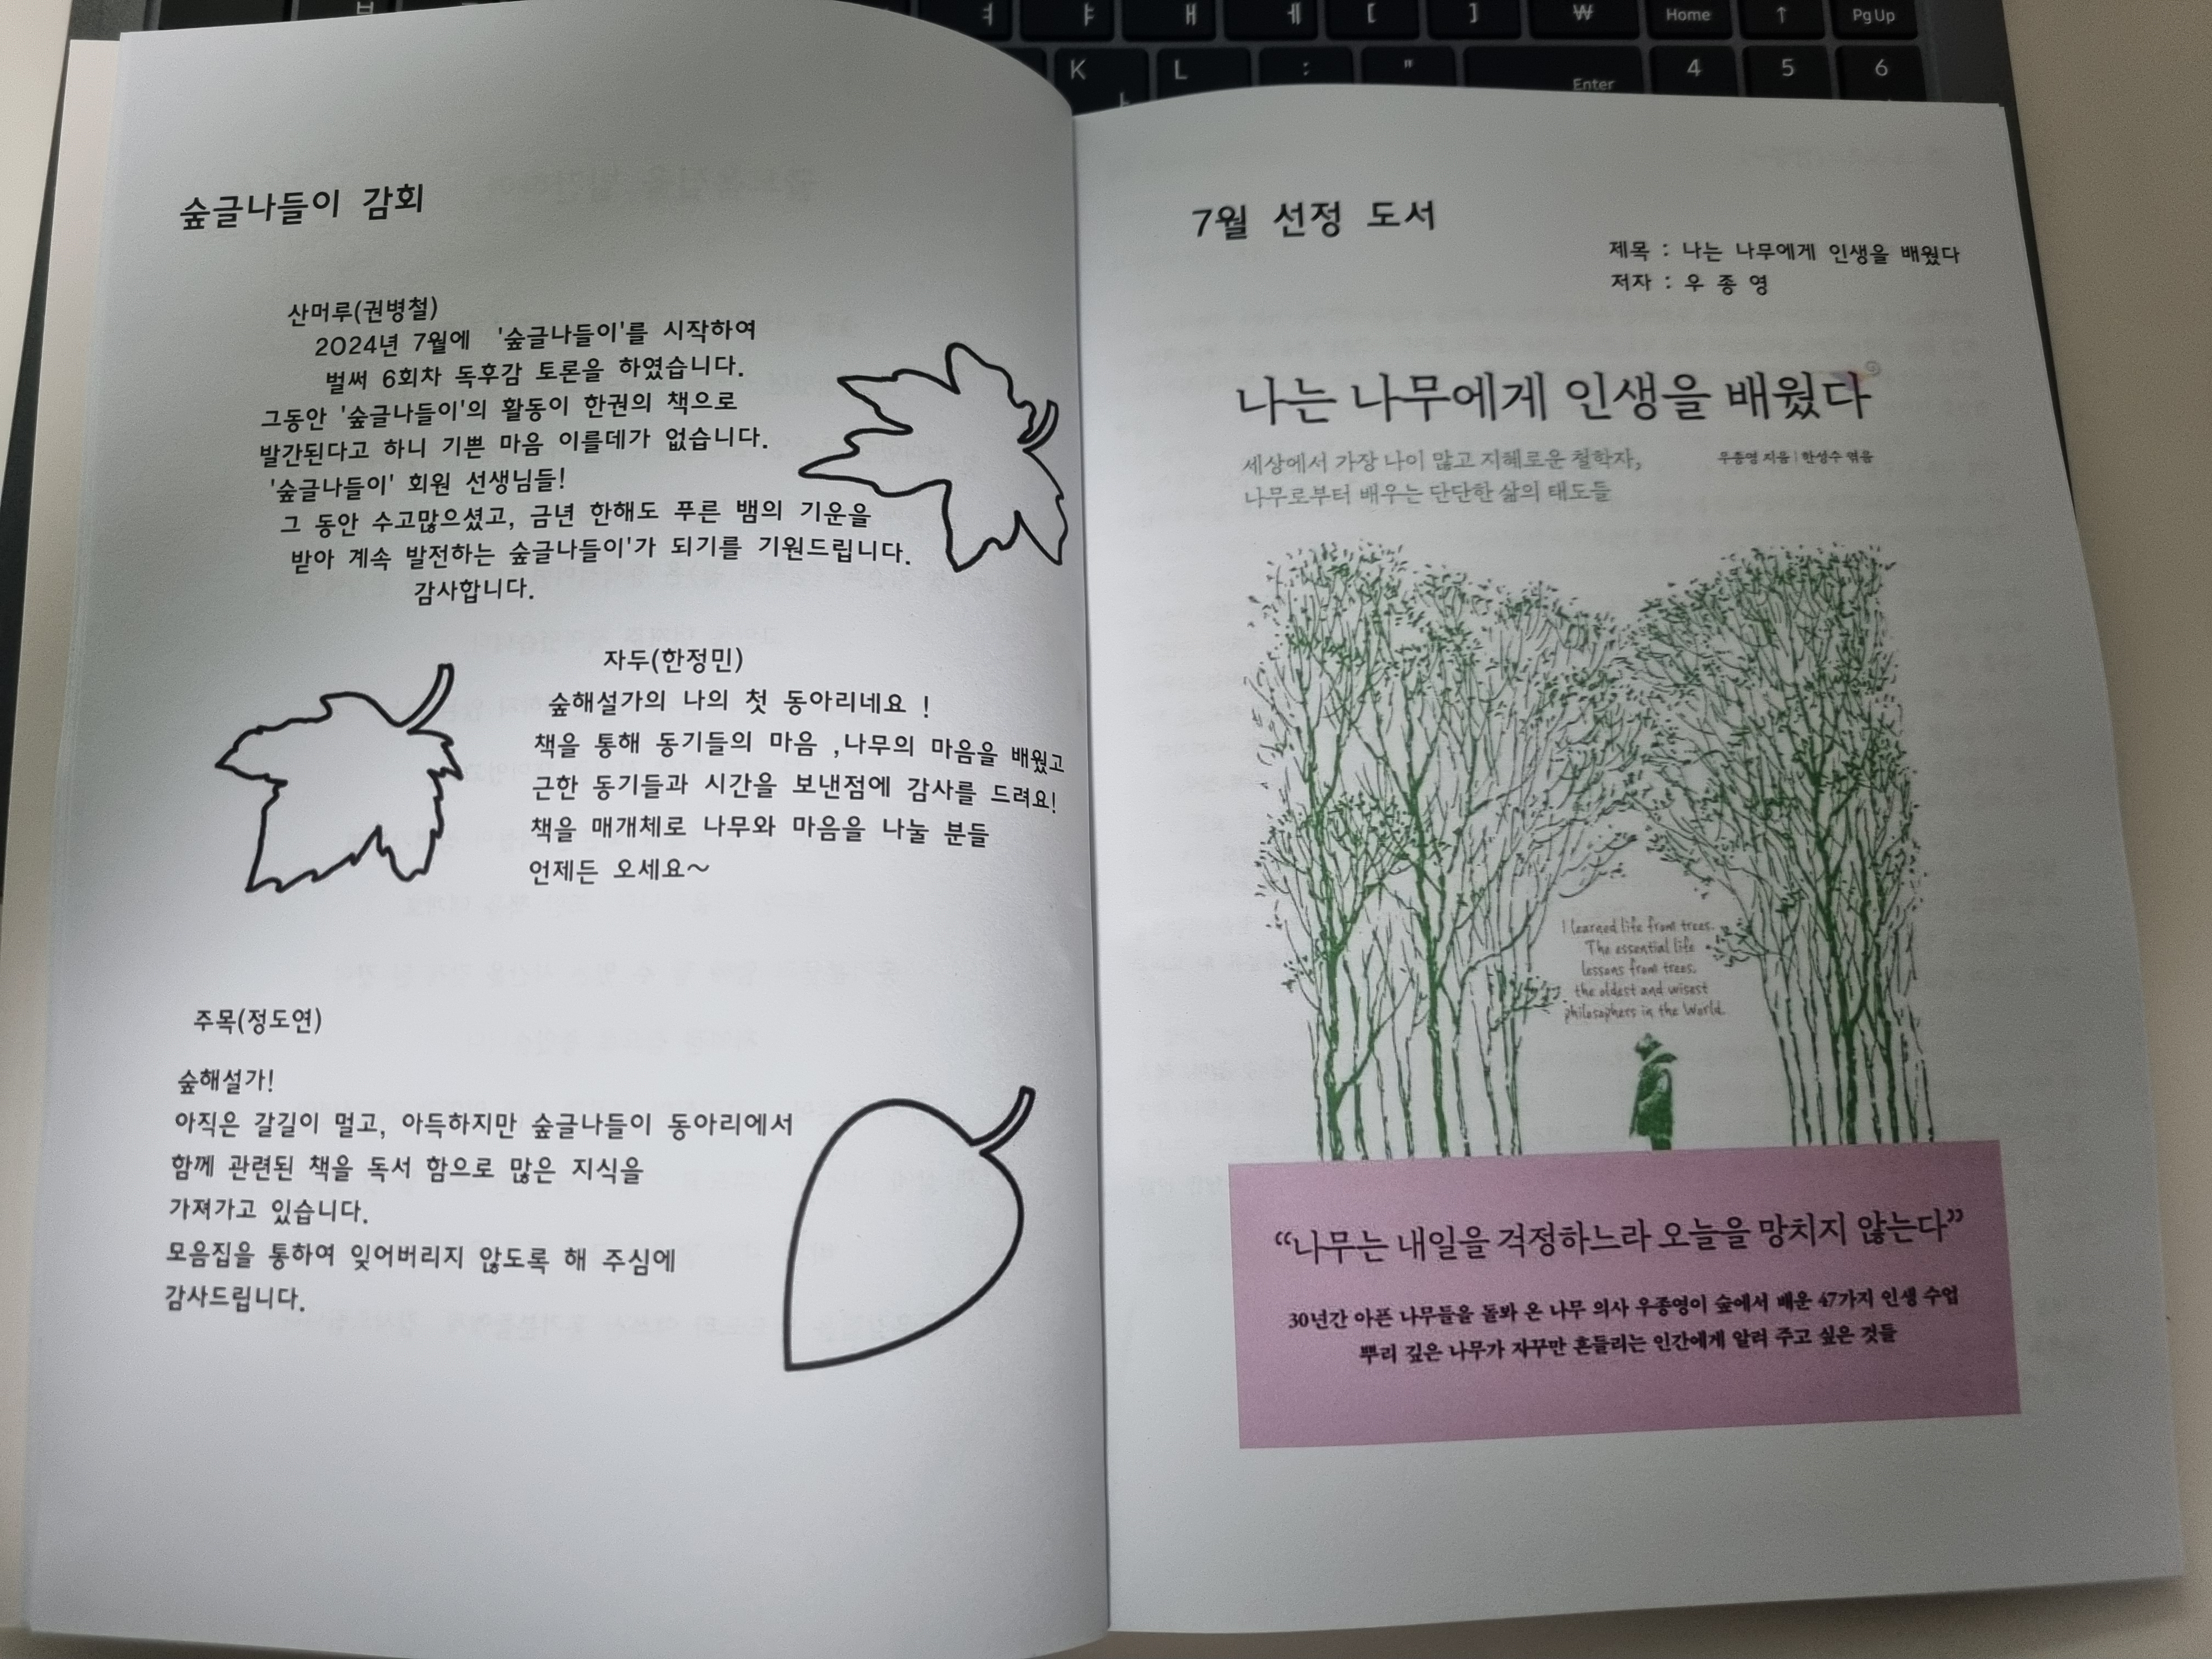 숲글나들이 감회
산머루(권병철)
2024년 7월에 '숲글나들이'를 시작하여
벌써 6회차 독후감 토론을 하였습니다.
그동안 '숲글나들이'의 활동이 한권의 책으로
발간된다고 하니 기쁜 마음 이를데가 없습니다.
'숲글나들이' 회원 선생님들!
그 동안 수고많으셨고, 금년 한해도 푸른 뱀의 기운을
받아 계속 발전하는 숲글나들이'가 되기를 기원드립니다.
감사합니다.
자두(한정민)
숲해설가의 나의 첫 동아리네요 !
책을 통해 동기들의 마음 ,나무의 마음을 배웠고
근한 동기들과 시간을 보낸점에 감사를 드려요!
책을 매개체로 나무와 마음을 나눌 분들
언제든 오세요~
주목(정도연)
숲해설가!
아직은 갈길이 멀고, 아득하지만 숲글나들이 동아리에서
함께 관련된 책을 독서 함으로 많은 지식을
가져가고 있습니다.
모음집을 통하여 잊어버리지 않도록 해 주심에
감사드립니다.
7월 선정 도서
제목 : 나는 나무에게 인생을 배웠다
저자 : 우 종 영
나는 나무에게 인생을 배웠다
세상에서 가장 나이 많고 지혜로운 철학자,
나무로부터 배우는 단단한 삶의 태도들
우종영 지음 | 한성수 엮음
I learned life from trees.
The essential life
lessons from trees,
the oldest and wisest
philosophers in the World.
“나무는 내일을 걱정하느라 오늘을 망치지 않는다”
30년간 아픈 나무들을 돌봐 온 나무 의사 우종영이 숲에서 배운 47가지 인생 수업
뿌리 깊은 나무가 자꾸만 흔들리는 인간에게 알려 주고 싶은 것들
ㅕ ㅑ ㅐ ㅔ [ ] ₩ Home ↑ PgUp
K L : " Enter 4 5 6